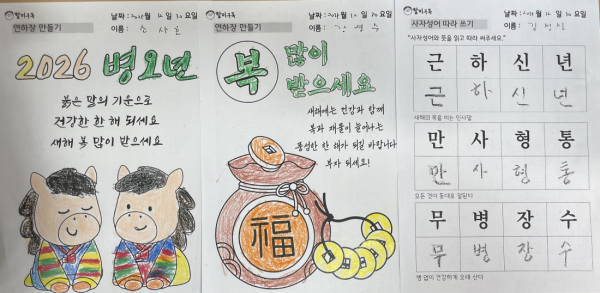 날짜: 2025년 12월 30일
연하장 만들기
이름: 소사
2026 병오년
붉은 말의 기운으로
건강한 한 해 되세요
새해 복 많이 받으세요
날짜: 12월 30일
연하장 만들기
이름:
복 많이
받으세요
새해에는 건강과 함께
복과 재물이 늘어나는
풍성한 한 해가 되길 바랍니다
부자 되세요!
福
날짜: 12월 30일
사자성어 따라 쓰기
이름: 김
"사자성어와 뜻을 읽고 따라 써주세요."
근 하 신 년
근 하 신 년
새해의 복을 비는 인사말
만 사 형 통
만 사 형 통
모든 것이 뜻대로 잘된다
무 병 장 수
무 병 장 수
병 없이 건강하게 오래 산다